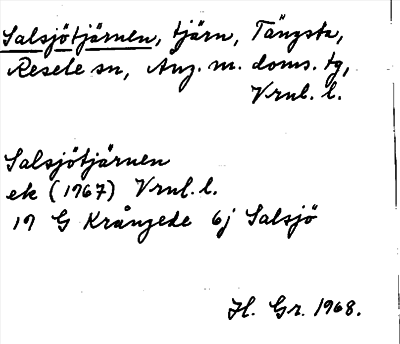 Salsjötjärnen, tjärn, Tängsta,
Resele sn, Ång. m. doms. tg,
Vrnl. l.
Salsjötjärnen
ek (1967) Vrnl. l.
19 G Krångede 6j Salsjö
H. Gr. 1968.